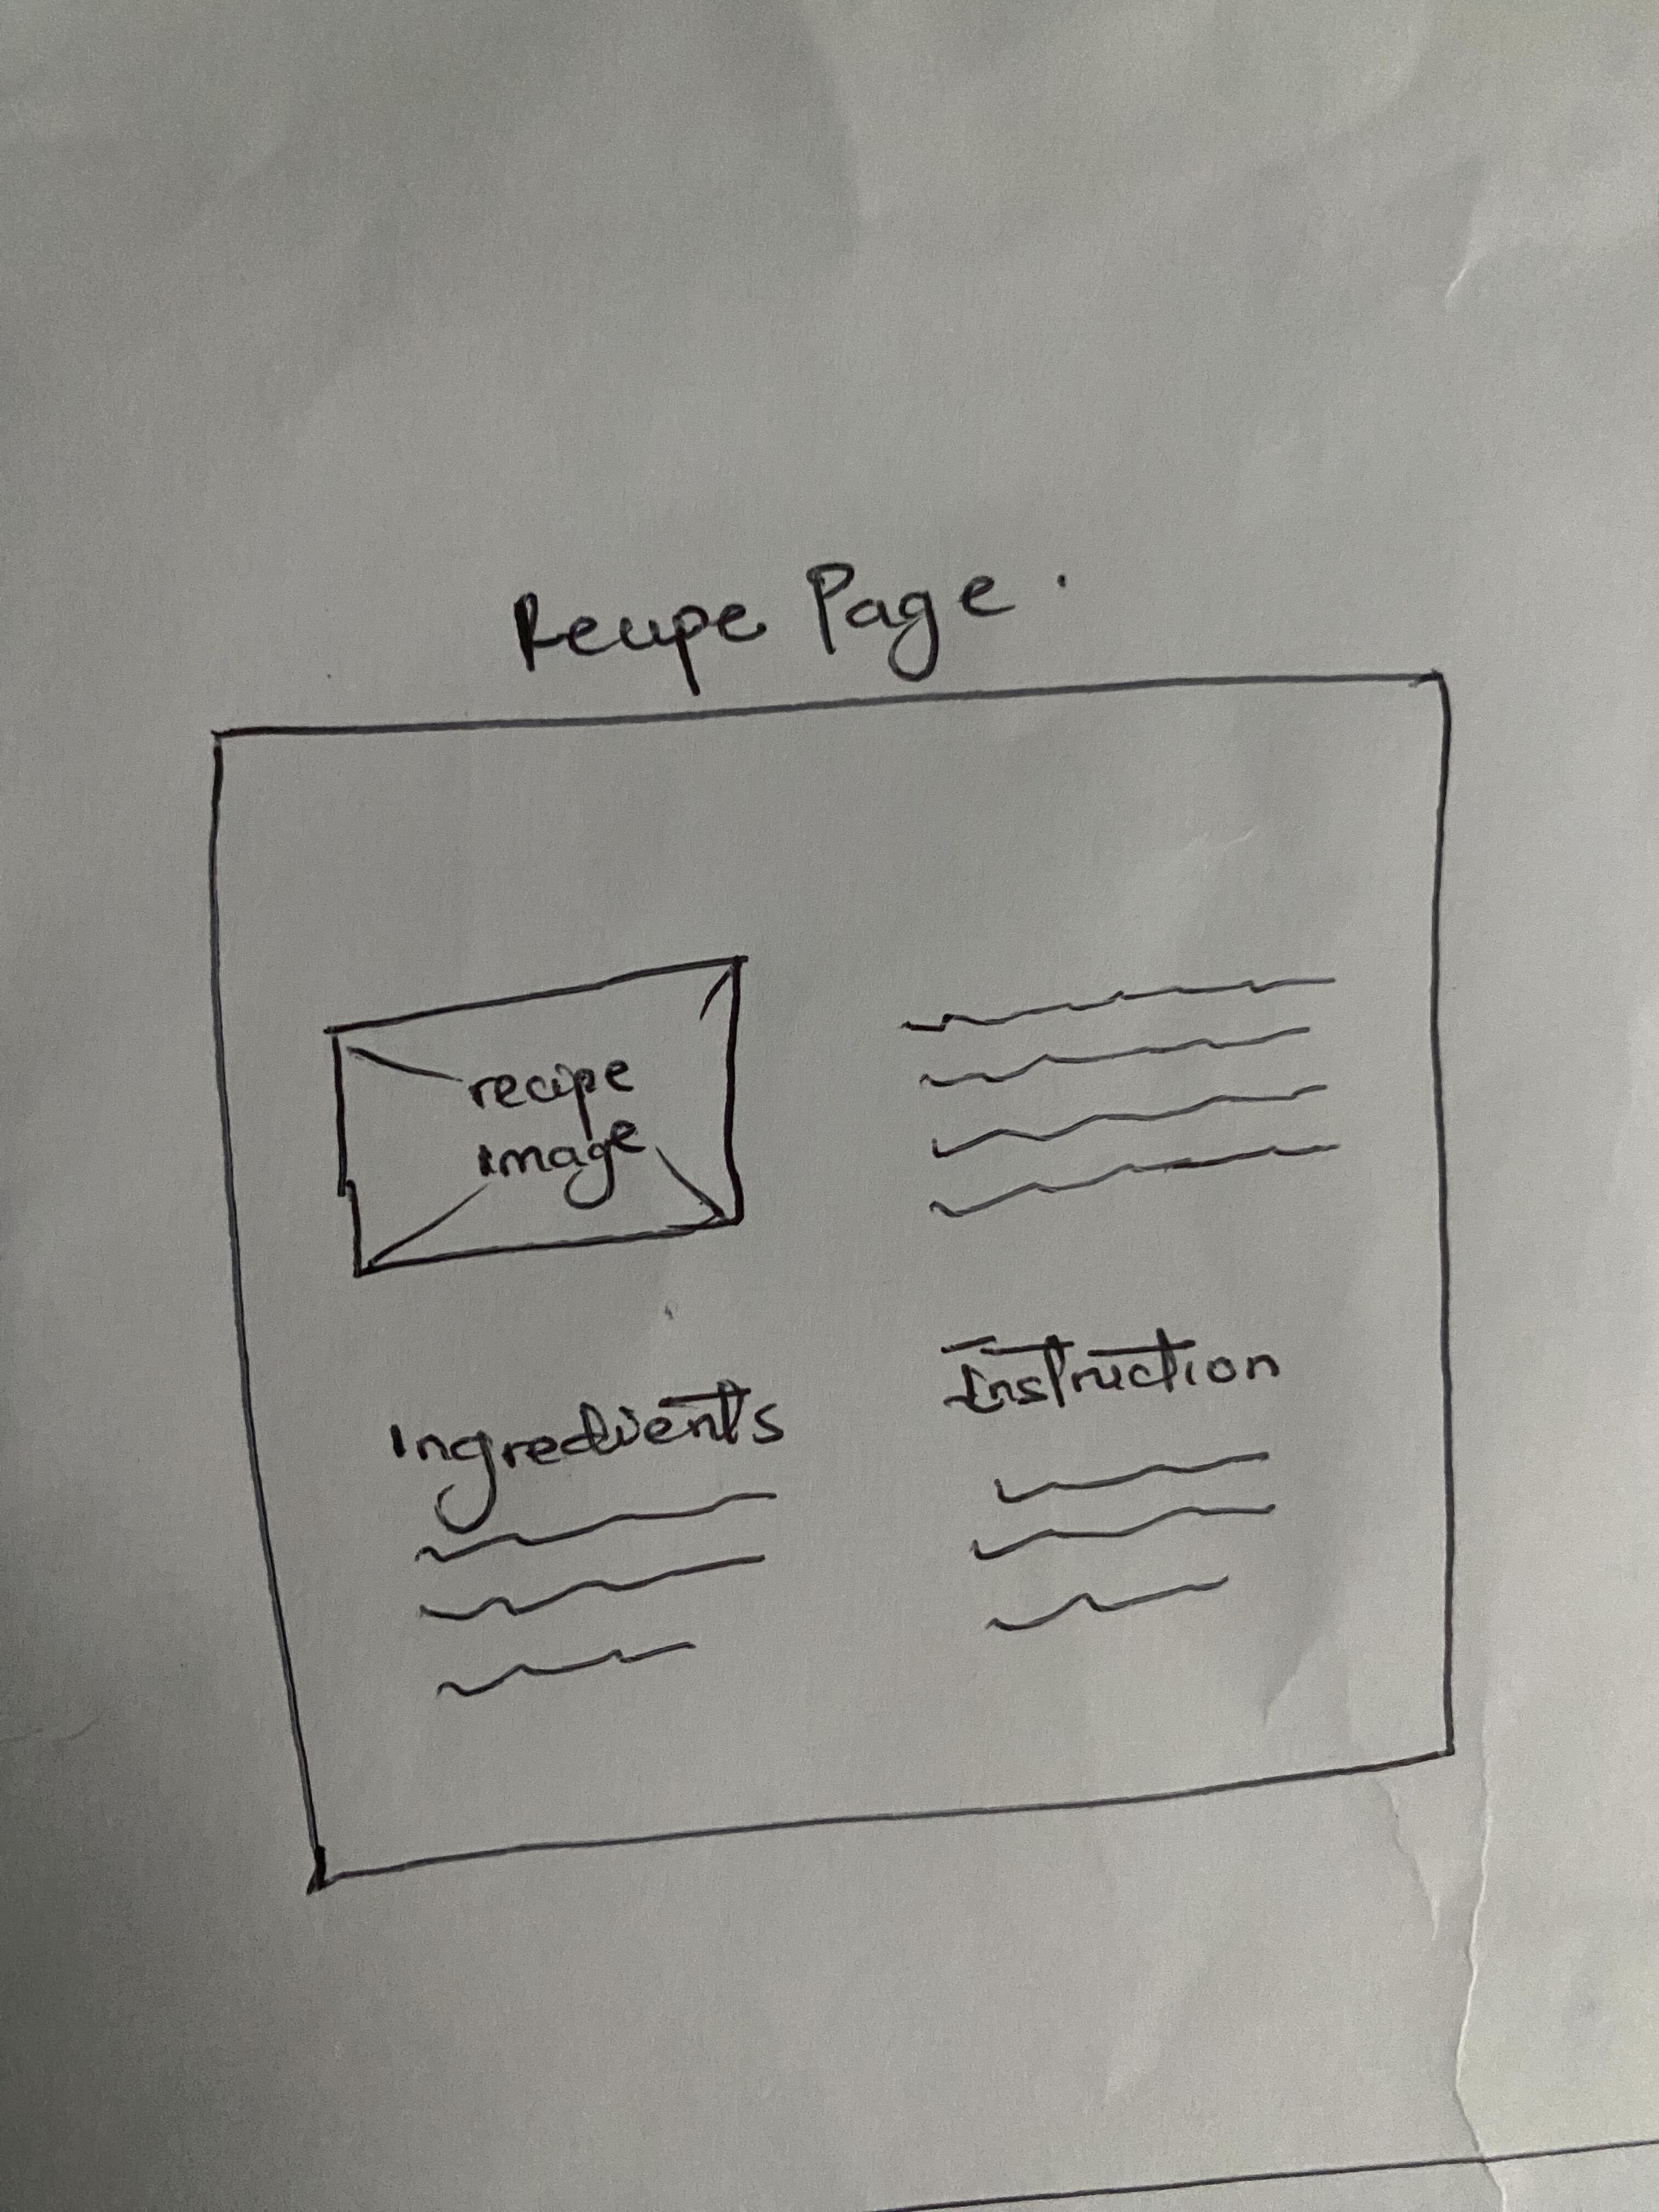 Recipe Page.
recipe
image
Ingredients
Instruction